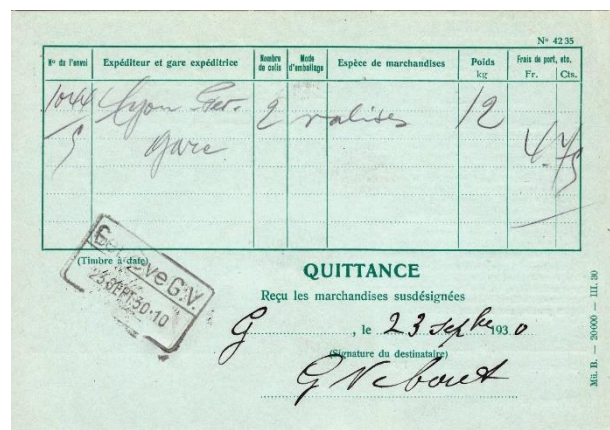 Nº 4235
Nº de l'envoi Expéditeur et gare expéditrice Nombre de colis Mode d'emballage Espèce de marchandises Poids kg Frais de port, etc. Fr. Cts.
1044 Lyon 2 valises 12
5 gare 4.75
(Timbre à date)
Genève G.V.
23.SEPT.30-10
QUITTANCE
Reçu les marchandises susdésignées
G, le 23 septbre 1930
(Signature du destinataire)
Mii. B. — 20000 — III. 30